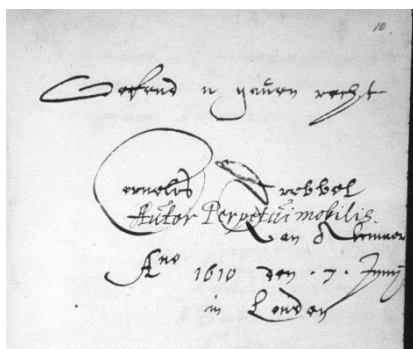 10
Oefend u gaven recht
Cornelis Drebbel
Autor Perpetui mobilis.
Van Alkmaer
Ano 1610 den . 7 . Junij
in Londen